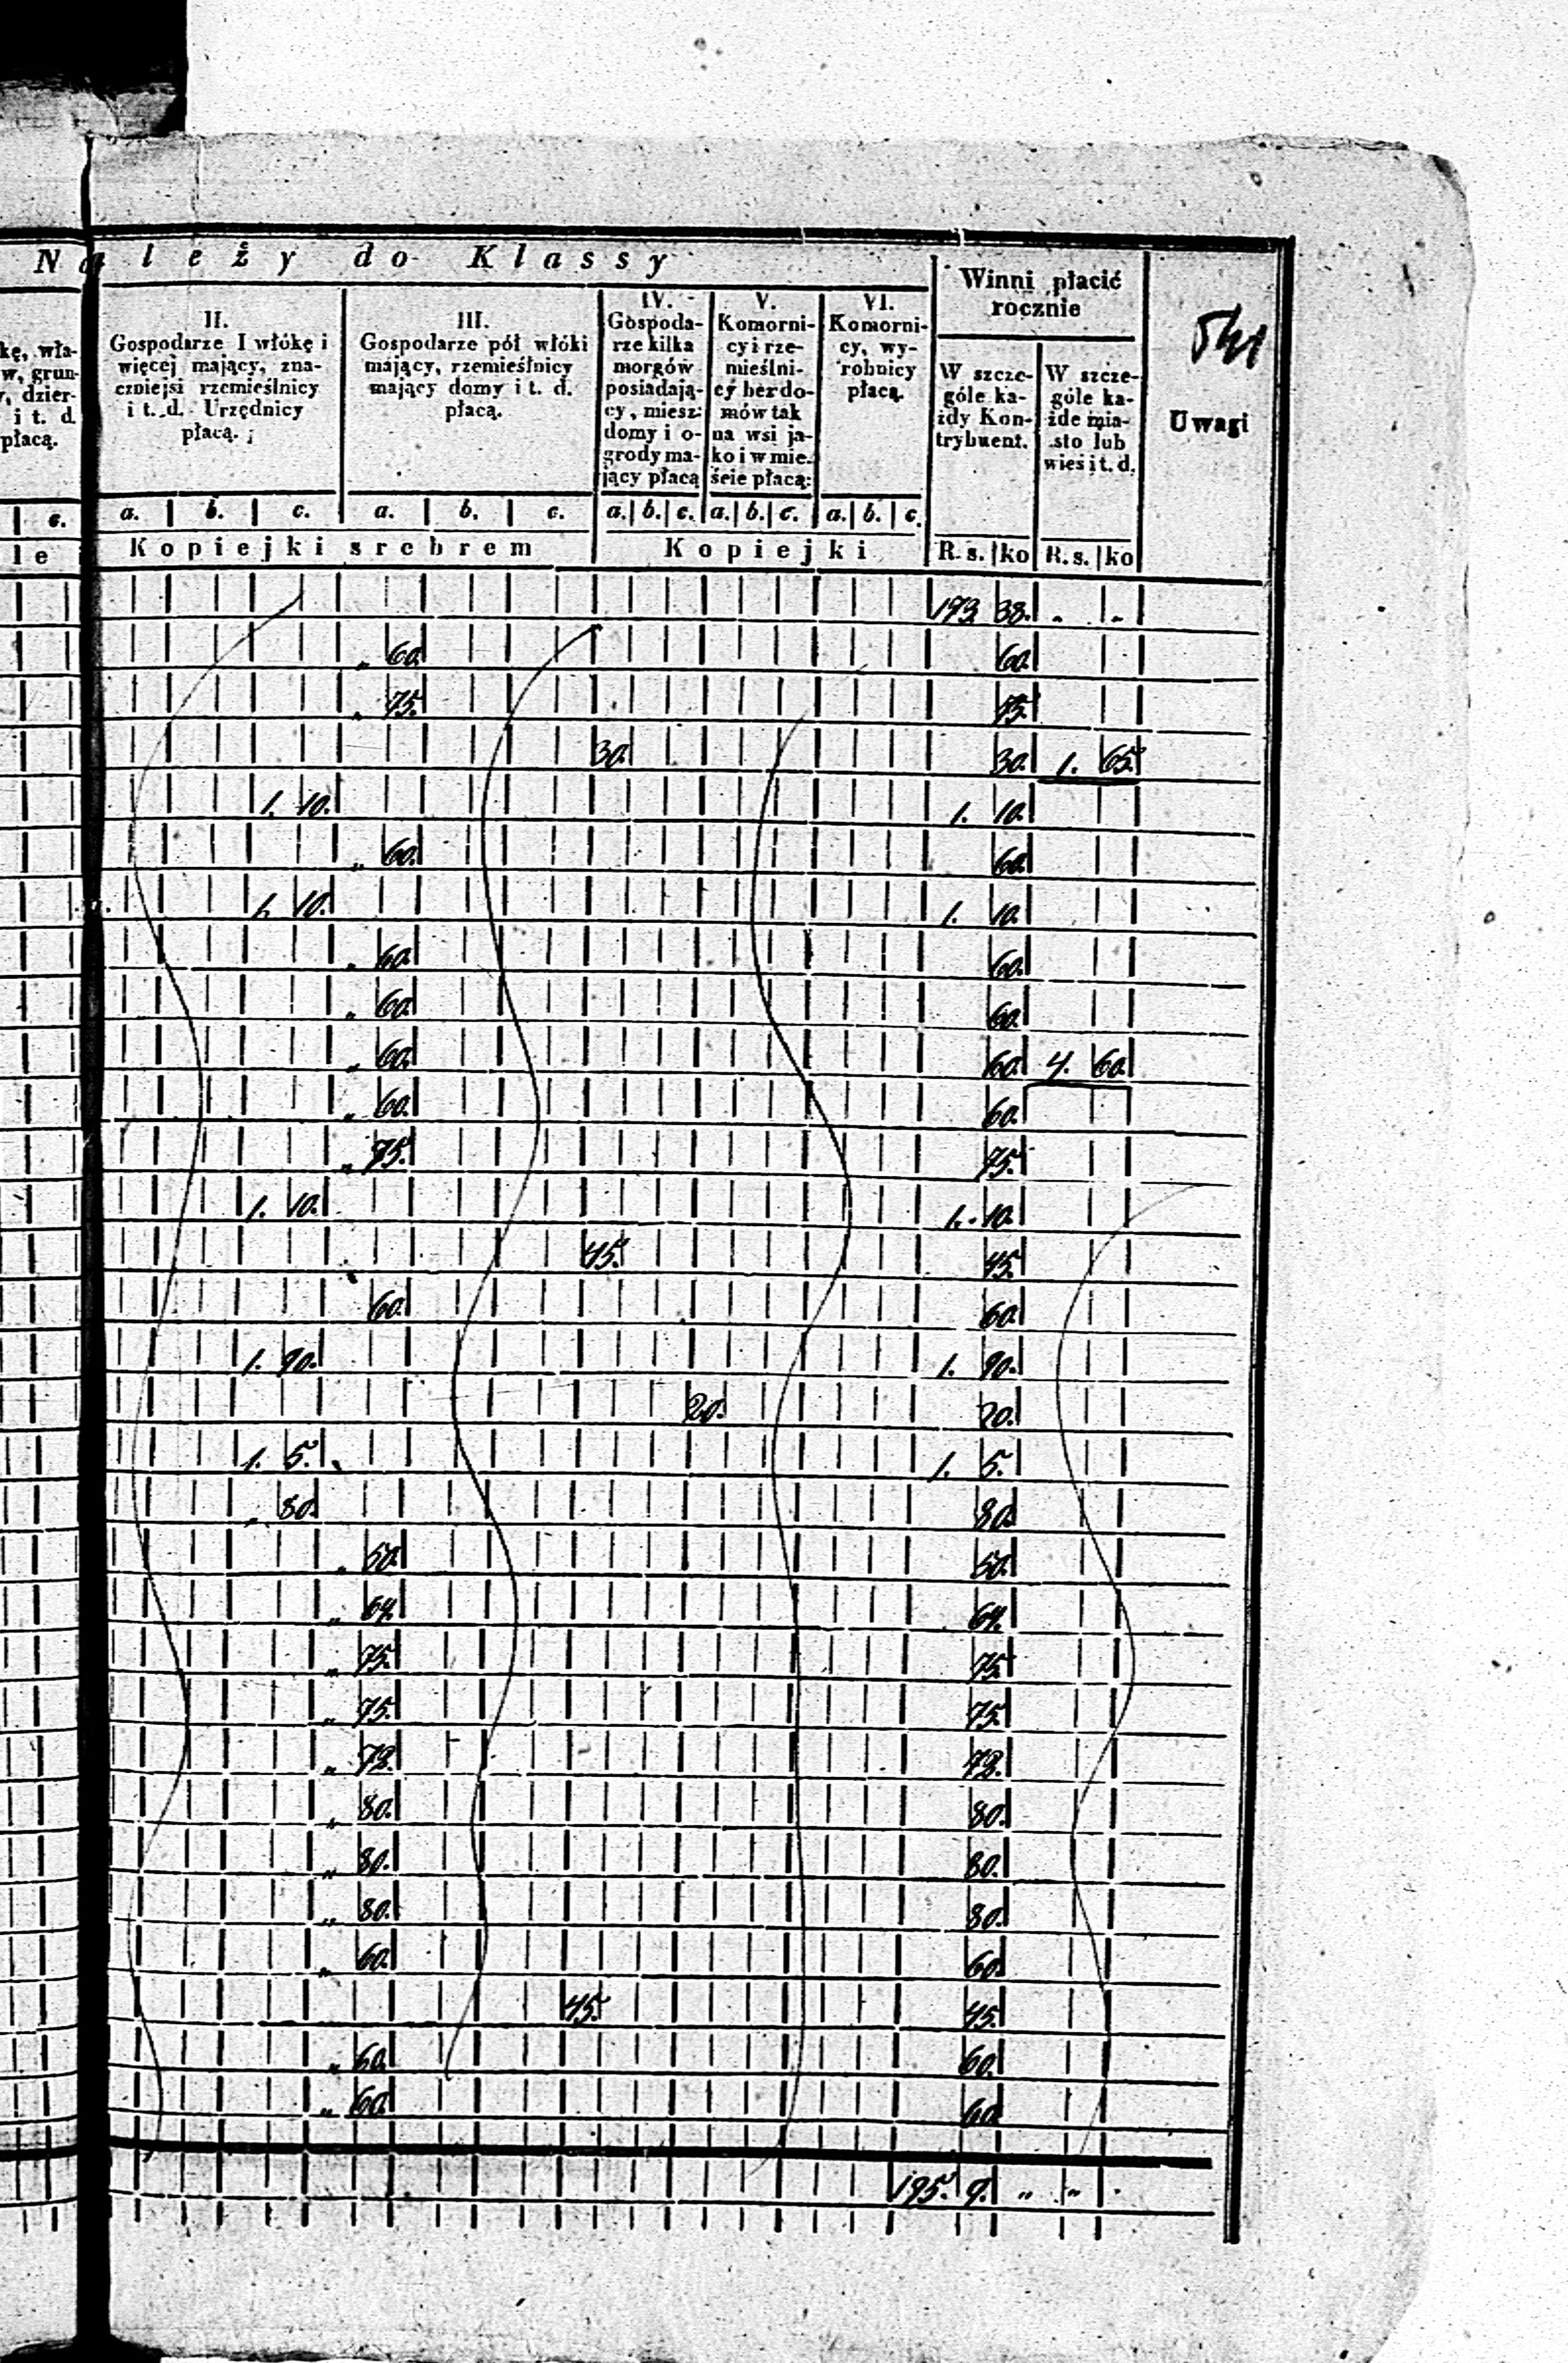 Należy do Klassy
Winni płacić
rocznie
541
kę, wła-
w, grun-
, dzier-
i t. d.
płacą.
II.
Gospodarze I włókę i
więcej mający, zna-
czniejsi rzemieślnicy
i t. d. Urzędnicy
płacą.
III.
Gospodarze pół włóki
mający, rzemieślnicy
mający domy i t. d.
płacą.
IV.
Gospoda-
rze kilka
morgów
posiadają-
cy, miesz:
domy i o-
grody ma-
jący płacą
V.
Komorni-
cy i rze-
mieślni-
cy bez do-
mów tak
na wsi ja-
ko i w mie-
ście płacą:
VI.
Komorni-
cy, wy-
robnicy
płacą.
W szcze-
góle ka-
żdy Kon-
trybuent.
W szcze-
góle ka-
żde mia-
sto lub
wieś i t. d.
Uwagi
c. a. b. c. a. b. c. a. b. c. a. b. c. a. b. c.
le Kopiejki srebrem Kopiejki R. s. ko R. s. ko
173 38. „ „
„ 60. 60.
„ 75. 75.
30. 30. 1. 65.
1. 10. 1. 10.
„ 60. 60.
1. 10. 1. 10.
„ 60. 60.
„ 60. 60.
„ 60. 60. 4. 60.
„ 60. 60.
„ 75. 75.
1. 10. 1. 10.
45. 45.
60. 60.
1. 90. 1. 90.
20. 20.
1. 5. 1. 5.
„ 80. 80.
„ 50. 50.
„ 64. 64.
„ 75. 75.
„ 75. 75.
„ 72. 72.
„ 80. 80.
„ 80. 80.
„ 80. 80.
„ 60. 60.
45. 45.
„ 60. 60.
„ 60. 60.
195. 9. „ „